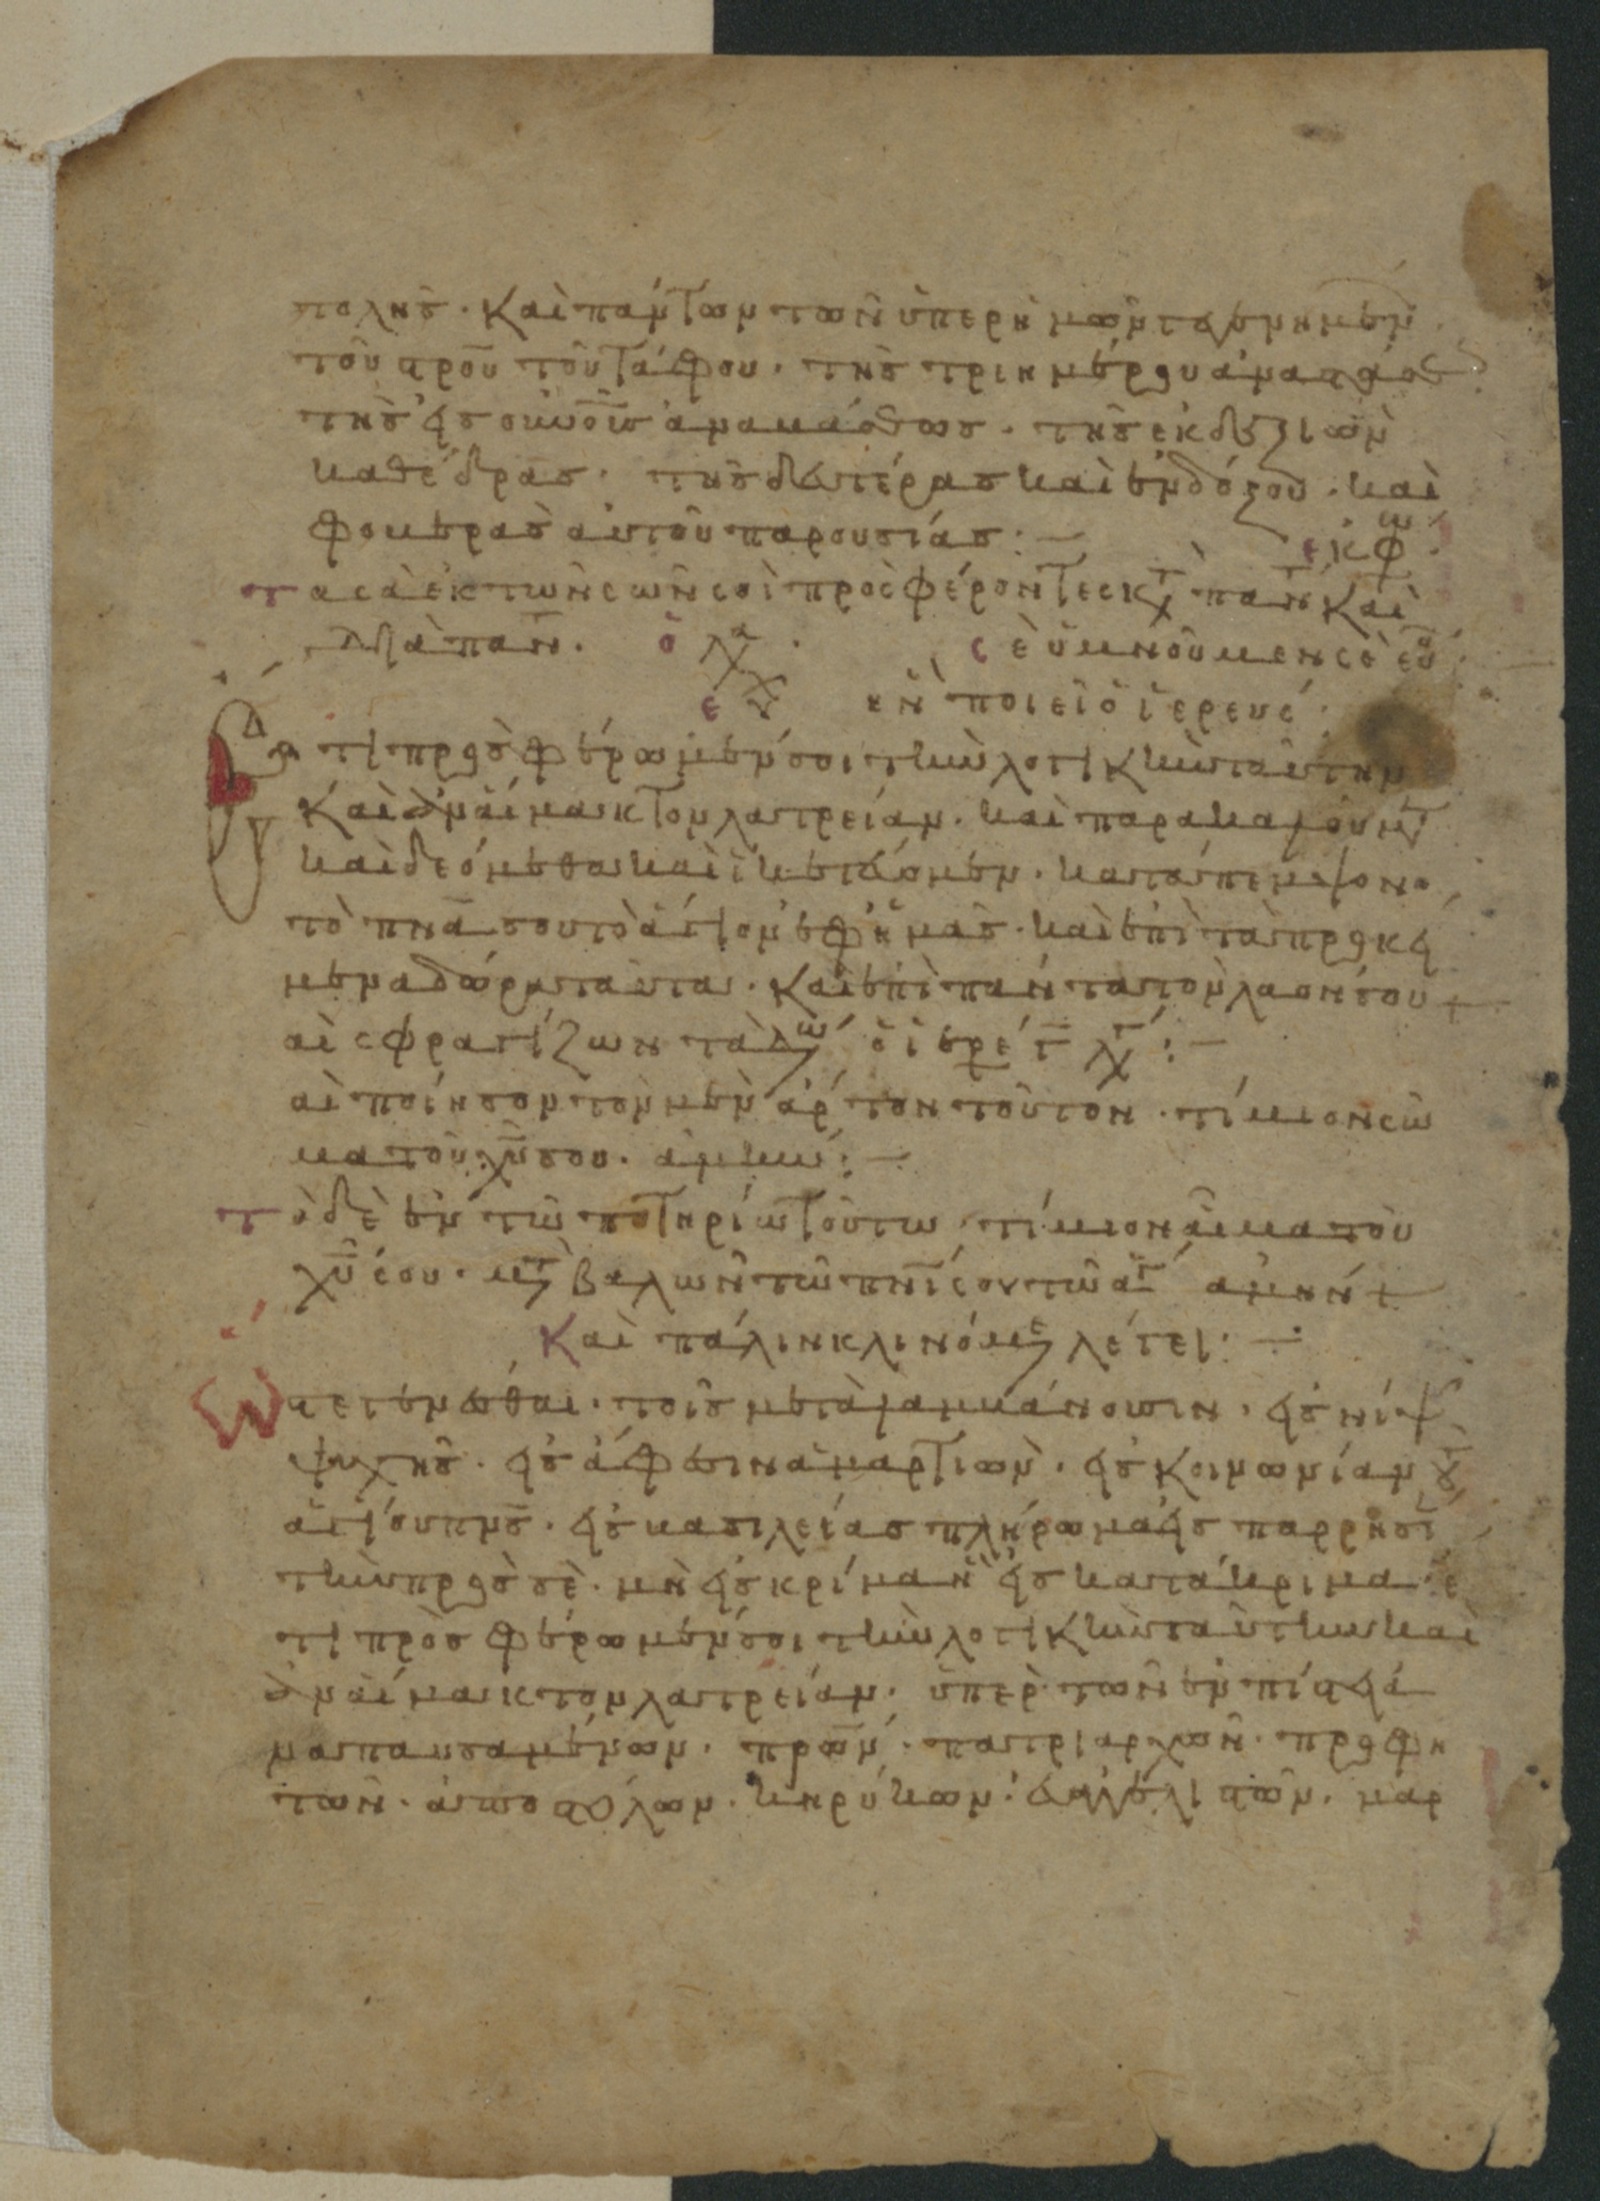 τολῆς· καὶ πάντων τῶν ὑπὲρ ἡμῶν γεγενημένων
τοῦ σταυροῦ τοῦ τάφου· τῆς τριημέρου ἀναστάσεως
τῆς εἰς οὐνοὺς ἀναβάσεως· τῆς ἐκ δεξιῶν
καθέδρας· τῆς δευτέρας καὶ ἐνδόξου· καὶ
φοβερᾶς αὐτοῦ παρουσίας:— ἐκφω
τὰ σὰ ἐκ τῶν σῶν σοὶ προσφέροντες κτ παντ καὶ
διὰ παντ. ὁ λα. σὲ ὑμνοῦμεν σὲ εὐ
εὐχὴν ποιεῖ ὁ ἱερεύς:
Ἔτι προσφέρωμέν σοι τὴν λογικὴν ταύτην
καὶ ἀναίμακτον λατρείαν· καὶ παρακαλοῦμεν
καὶ δεόμεθα καὶ ἱκετεύομεν· κατάπεμψον
τὸ πνα σου τὸ ἅγιον ἐφ' ἡμᾶς· καὶ ἐπὶ τὰ προκεί
μενα δῶρα ταῦτα· καὶ ἐπὶ πάντα τὸν λαόν σου +
αι σφραγίζων τὰ δῶ ὁ ἱερε λγ:—
αι ποίησον τὸν μὲν ἄρτον τοῦτον· τίμιον σῶ
μα τοῦ χυ σου· ἀμήν:—
τὸ δὲ ἐν τῶ ποτηρίω τούτω τίμιον αἷμα τοῦ
χυ σου· μεταβαλὼν τῶ πνι σου τῶ ἁγ ἀμήν +
καὶ πάλιν κλινόμε λέγει:—
ὥστε γενέσθαι· τοῖς μεταλαμβάνουσιν· εἰς νίψ
ψυχῆς· εἰς ἄφεσιν ἁμαρτιῶν· εἰς κοινωνίαν τοῦ
ἁγίου πνς· εἰς βασιλείας πλήρωμα εἰς παρρησι
τὴν πρὸς σὲ· μὴ εἰς κρίμα ἢ εἰς κατάκριμα· ἔ
τι προσφέρωμέν σοι τὴν λογικὴν ταύτην καὶ
ἀναίμακτον λατρείαν· ὑπὲρ τῶν ἐν πίστει ἀ
ναπαυσαμένων· πρων· πατριαρχῶν· προφη
τῶν· ἀποστόλων· κηρύκων· εὐαγγελιστῶν· μαρ